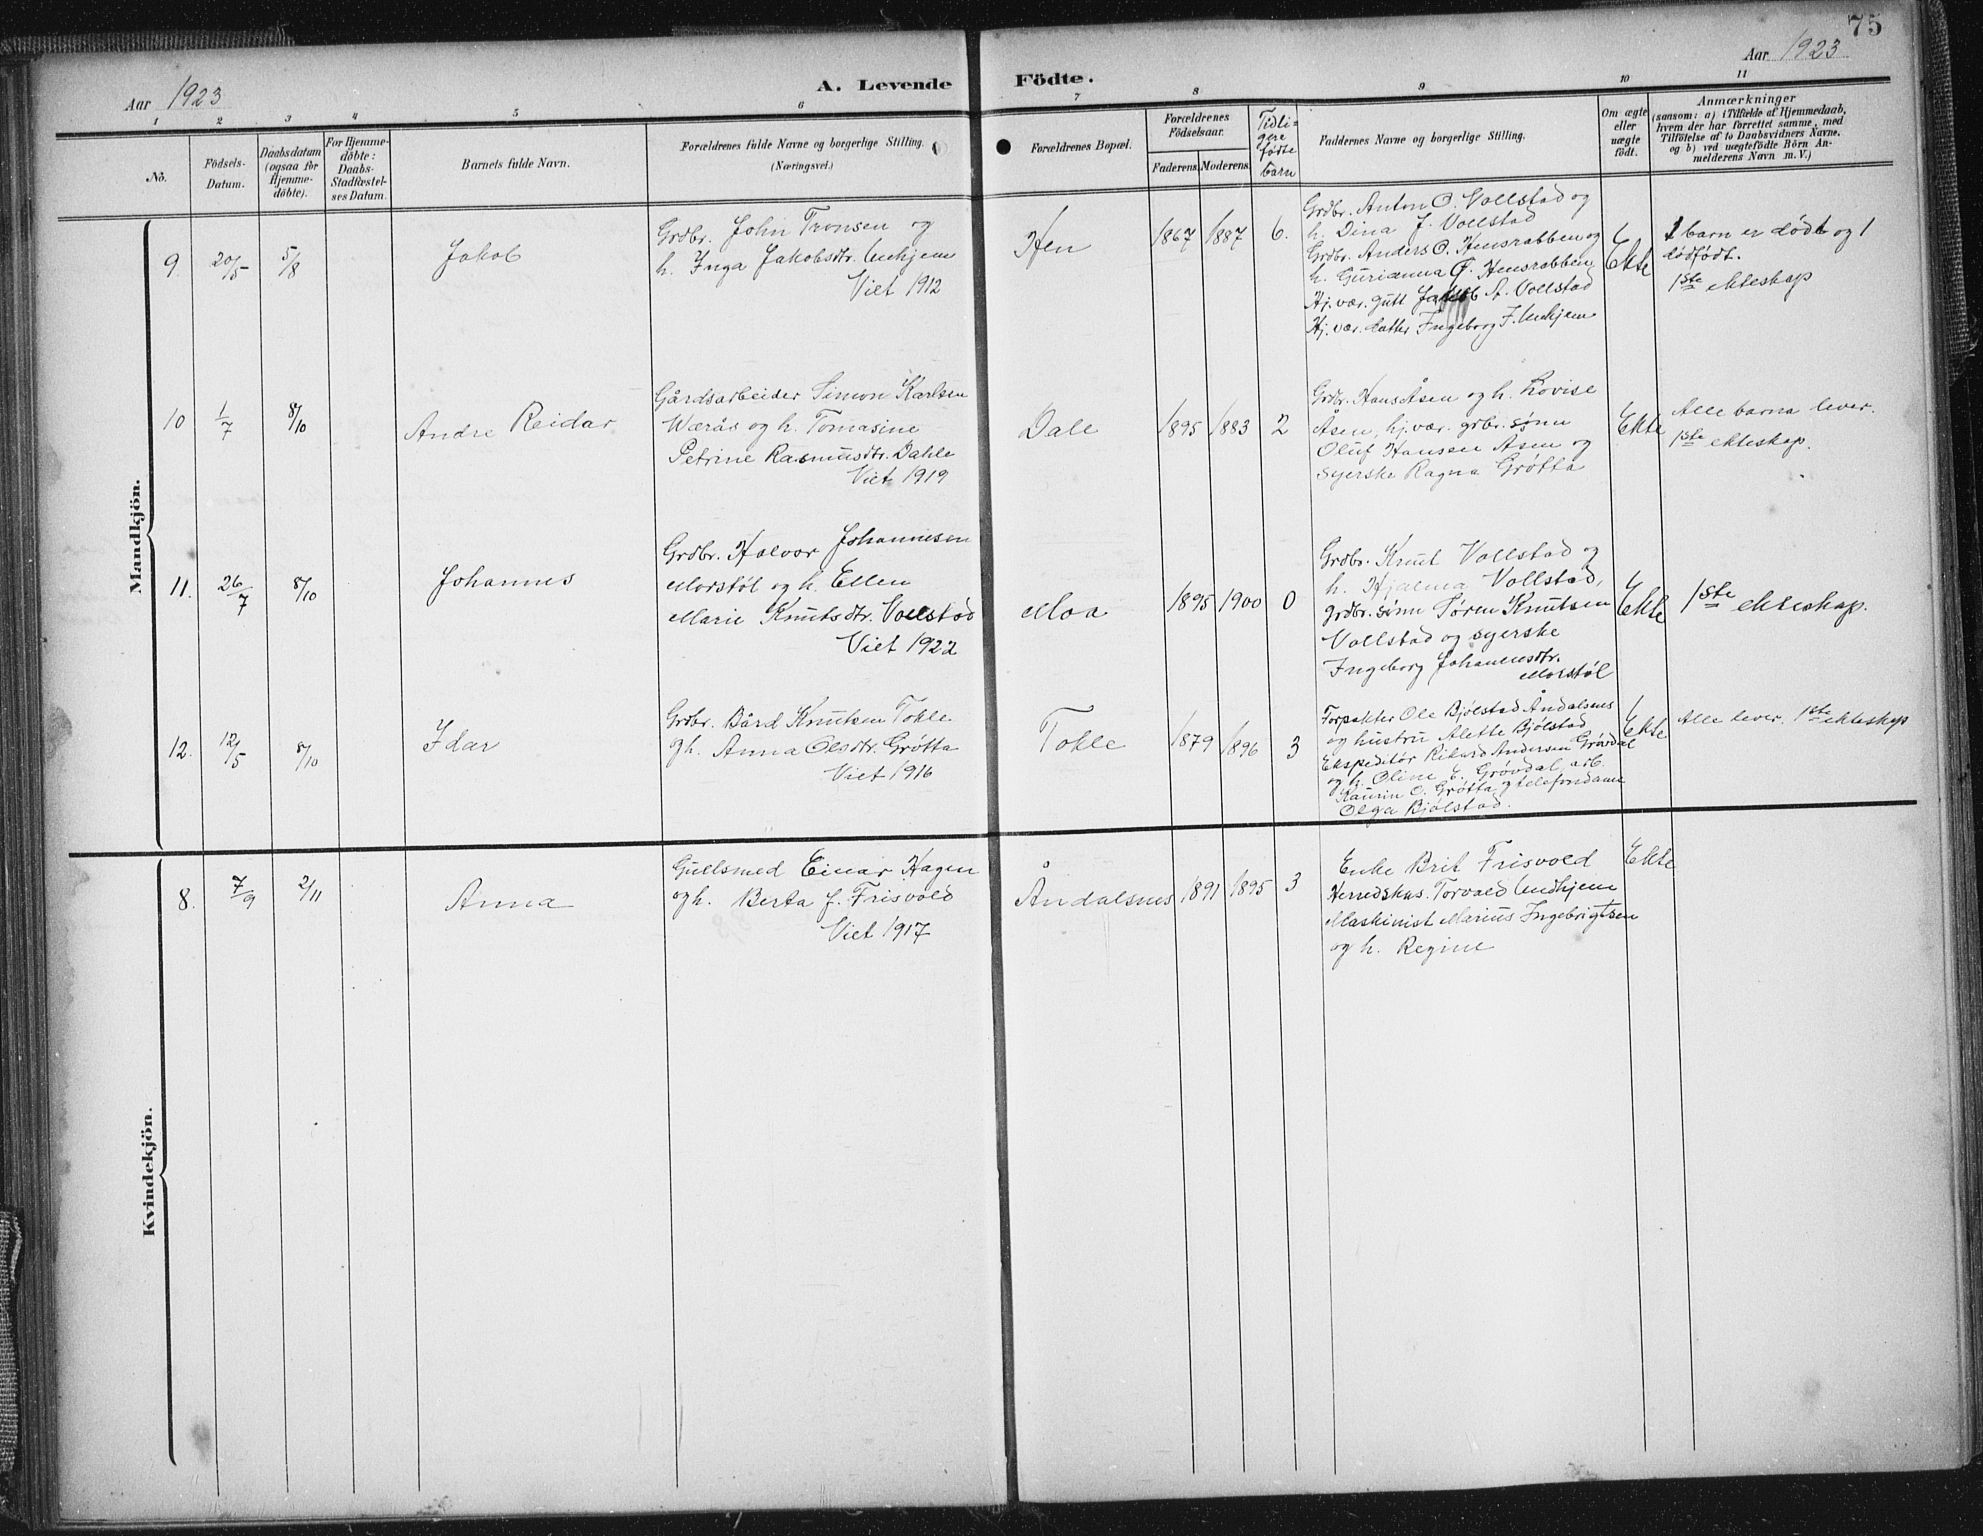 75
Aar 1923
A. Levende Födte.
Aar 1923
1 2 3 4 5 6 7 8 9 10 11
No.
Födsels-
Datum.
Daabsdatum
(ogsaa för
Hjemme-
döbte).
For Hjemme-
döbte:
Daabs-
Stadfæstel-
ses Datum.
Barnets fulde Navn.
Forældrenes fulde Navne og borgerlige Stilling.
(Næringsvei.)
Forældrenes Bopæl.
Forældrenes
Födselsaar.
Faderens. Moderens.
Tidli-
gere
fødte
barn
Faddernes Navne og borgerlige Stilling.
Om ægte
eller
uægte
födt.
Anmærkninger
(sansom: a) i Tilfælde af Hjemmedaab,
hvem der har forrettet samme, med
Tilföielse af to Daabsvidners Navne,
og b) ved uægtefödte Börn An-
melderens Navn m. V.)
Mandkjön.
9. 20/5 5/8 Jakob
Grdbr. John Tronsen og
h. Inga Jakobsdtr. Unhjem
Viet 1912
Hen 1867 1887 6.
Grdbr. Anton O. Vollstad og
h. Dina J. Vollstad
Grdbr. Anders O. Hensrabben og
h. Gurianna G. Hensrabben
Hj. vær. gutt Jakob A. Vollstad
Hj. vær. datter Ingeborg J. Unhjem
Ekte
1 barn er dødt og 1
dødfødt.
1ste ekteskap
10 1/7 8/10 Andre Reidar
Gårdsarbeider Simon Karlsen
Wærås og h. Tomasine
Petrine Rasmusdtr. Dahle
Viet 1919
Dale 1895 1883 2
Grdbr. Hans Åsen og h. Lovise
Åsen, hj. vær. grbr. sønn
Oluf Hansen Åsen og
syerske Ragna Grøtta
Ekte
Alle barna lever.
1ste ekteskap.
11. 26/7 8/10 Johannes
Grdbr. Halvor Johannesen
Morstøl og h. Ellen
Marie Knutsdtr. Vollstad
Viet 1922
Moa 1895 1900 0
Grdbr. Knut Vollstad og
h. Hjalma Vollstad,
grdbr. sønn Søren Knutsen
Vollstad og syerske
Ingeborg Johannesdtr.
Morstøl
Ekte
1ste ekteskap.
12. 12/5 8/10 Idar
Grdbr. Bård Knutsen Tokle
og h. Anna Olsdtr. Grøtta
Viet 1916
Tokle 1879 1896 3
Forpakter Ole Bjølstad Åndalsnes
og hustru Alette Bjølstad
Ekspeditør Rikard Andersen Grøvdal
og h. Oline E. Grøvdal, arb.
Kaurin O. Grøtta og telefondame
Olga Bjølstad.
Ekte
Alle lever. 1ste ekteskap
Kvindekjön.
8. 7/9 2/11 Anna
Gullsmed Einar Hagen
og h. Berta J. Frisvold
Viet 1917
Åndalsnes 1891 1895 3
Enke Brit Frisvold
Herredskas. Torvald Undhjem
Maskinist Marius Ingebrigtsen
og h. Regine
Ekte